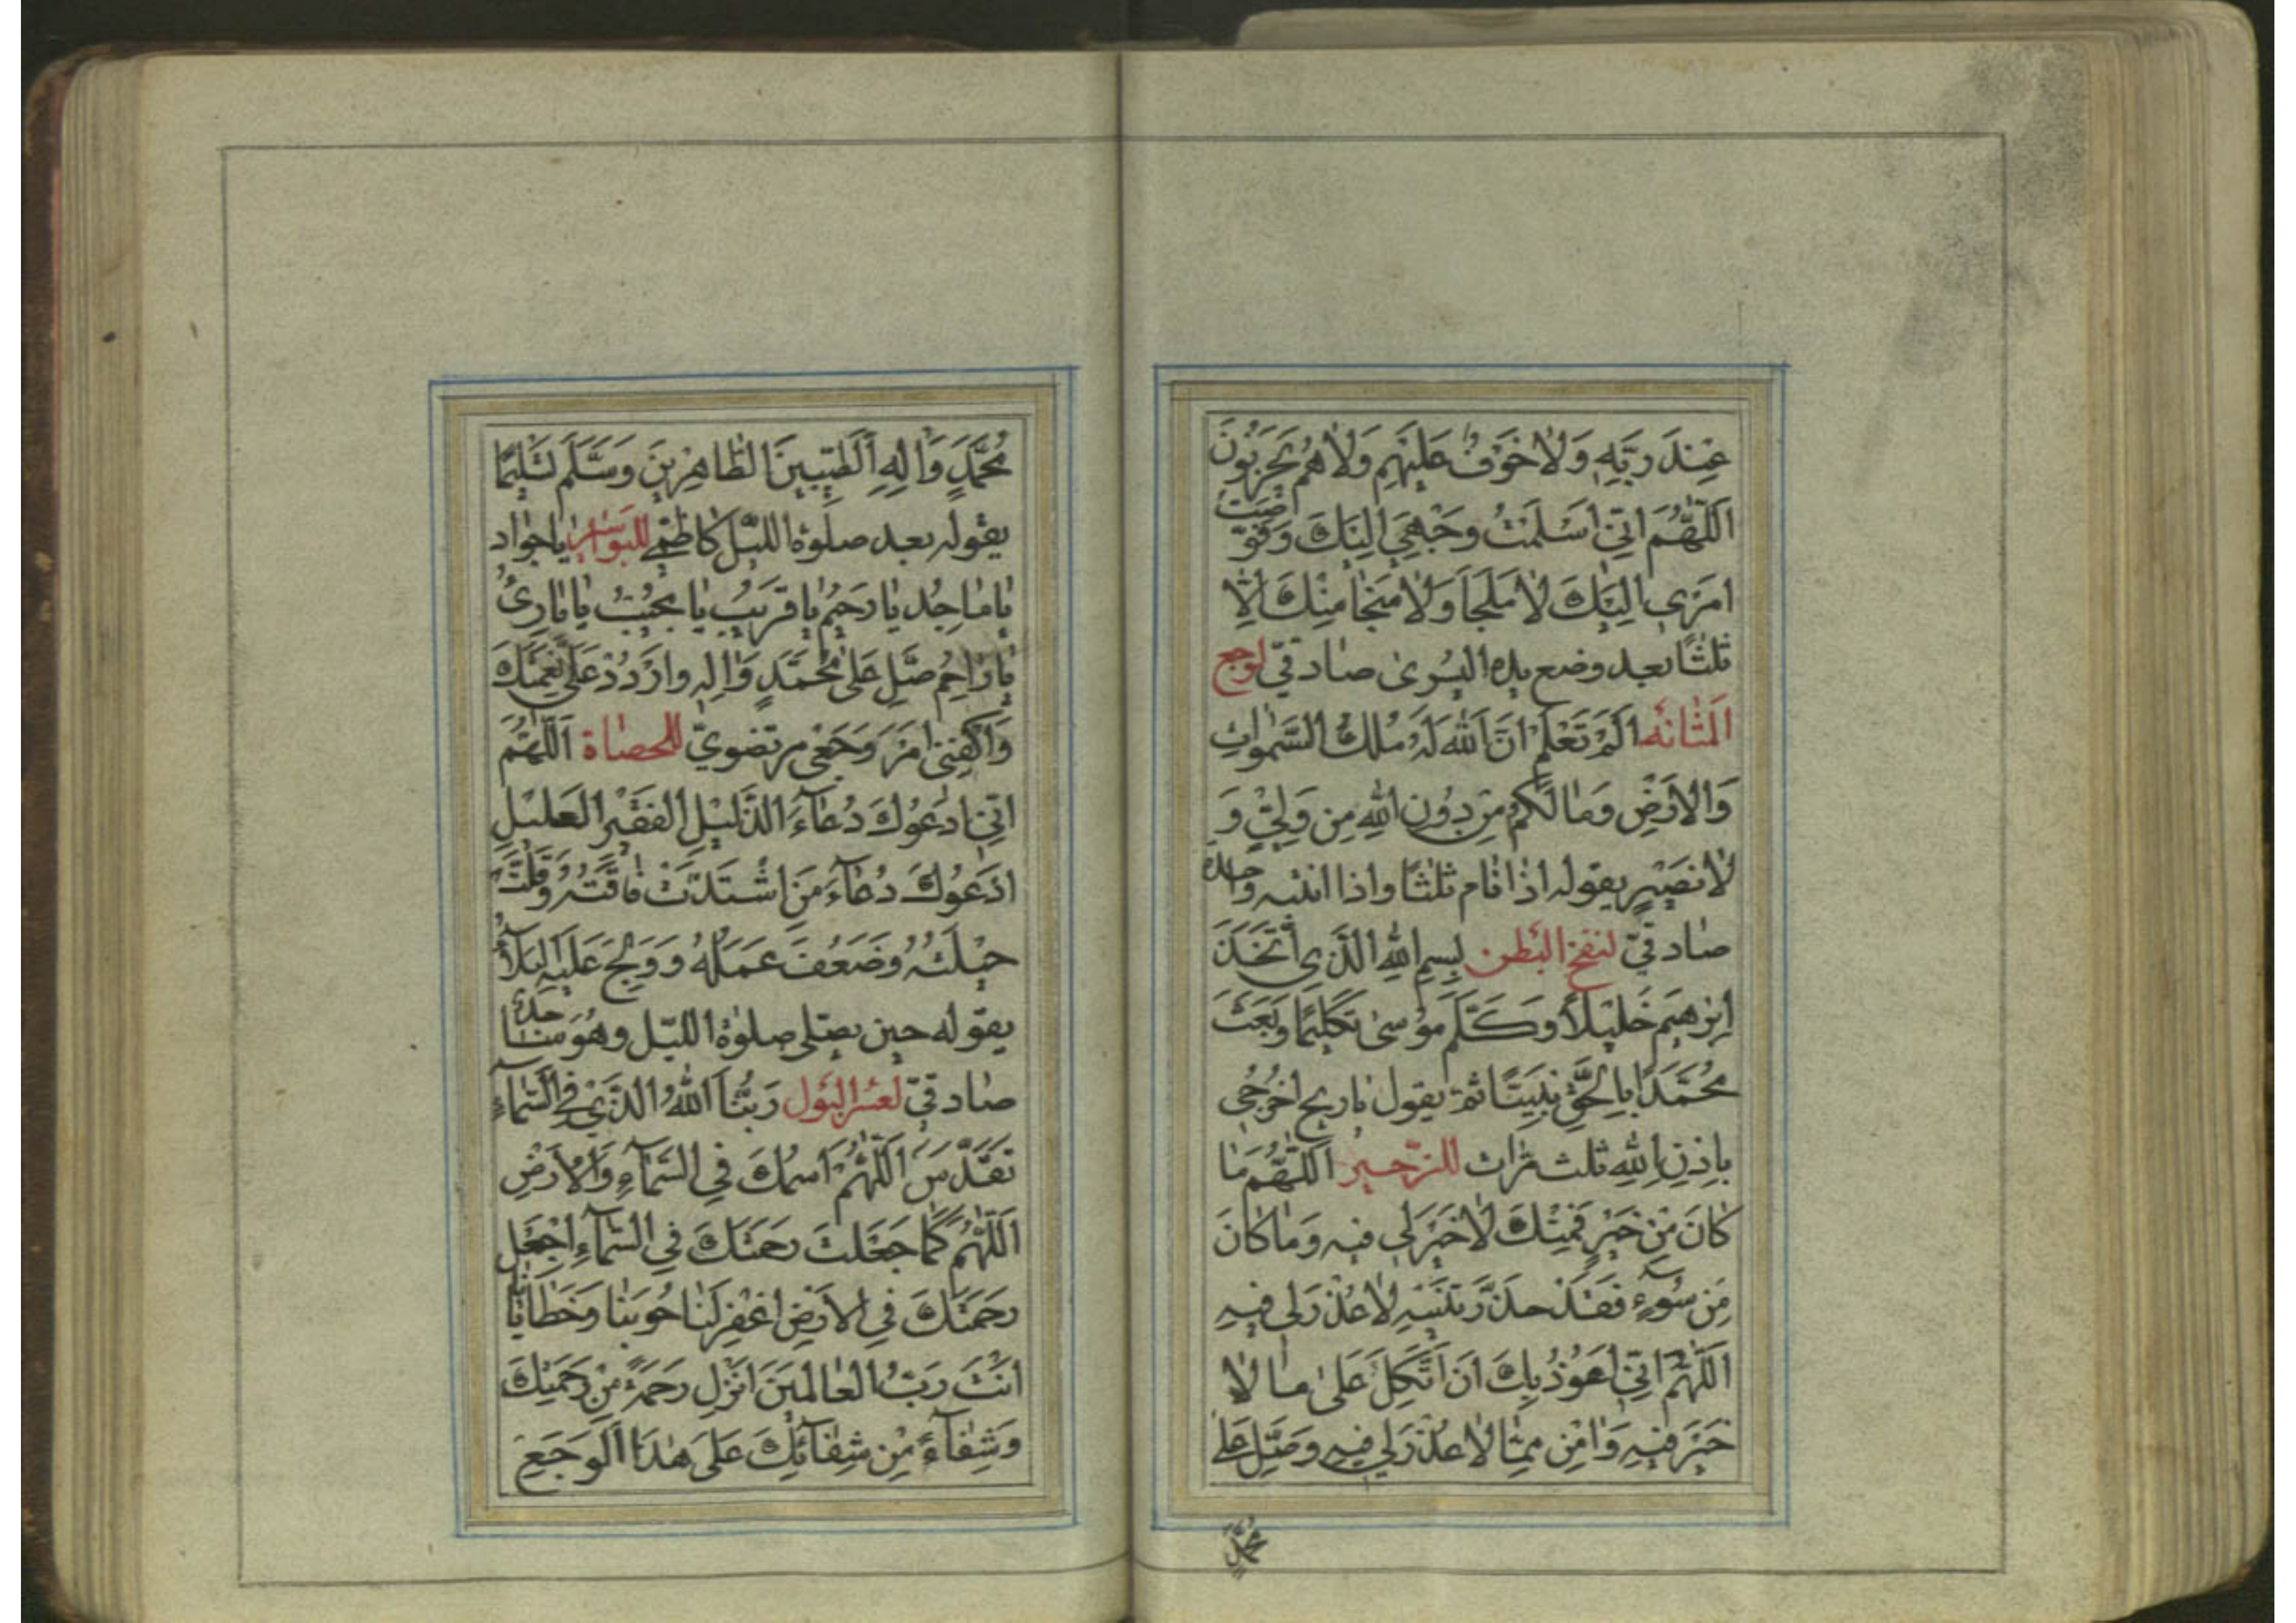 عِنْدَ رَبِّهِ وَلَا خَوْفٌ عَلَيْهِمْ وَلَا هُمْ يَحْزَنُونَ
اَللّٰهُمَّ اِنّي اَسْلَمْتُ وَجْهِيَ اِلَيْكَ وَفَوَّضْتُ
اَمْري اِلَيْكَ لَا مَلْجَاَ وَلَا مَنْجَا مِنْكَ اِلَّا
ثلثًا بعد وضع يده اليسرى صادقيّ لوجع
المثانه اَلَمْ تَعْلَمْ اَنَّ اللهَ لَهُ مُلْكُ السَّمٰوَاتِ
وَالْاَرْضِ وَمَا لَكُمْ مِنْ دُونِ اللهِ مِنْ وَلِيٍّ وَ
لَا نَصيرٍ يقوله اذا قام ثلثًا واذا انتبه واحدة
صادقيّ لنفخ البطن بِسْمِ اللهِ الَّذي اتَّخَذَ
اِبْرٰهيمَ خَليلًا وَكَلَّمَ مُوسىٰ تَكْليمًا وَبَعَثَ
مُحَمَّدًا بِالْحَقِّ نَبِيًّا ثم يقول يا ريح اخْرُجي
بِاِذْنِ اللهِ ثلث مرّات للزّحير اَللّٰهُمَّ مَا
كَانَ مِنْ خَيْرٍ فَمِنْكَ لَا خَيْرَ لي فيهِ وَمَا كَانَ
مِنْ سُوٓءٍ فَقَدْ حَذَّرْتَنيهِ لَا عُذْرَ لي فيهِ
اَللّٰهُمَّ اِنّي اَعُوذُ بِكَ اَنْ اَتَّكِلَ عَلىٰ مَا لَا
خَيْرَ فيهِ وَاٰمَنَ مِمَّا لَا عُذْرَ لي فيهِ وَصَلِّ عَلىٰ
مُحَمَّدٍ
مُحَمَّدٍ وَاٰلِهِ الطَّيِّبينَ الطَّاهِرينَ وَسَلَّمَ تَسْليمًا
يقوله بعد صلوة الليل كاظميّ للبواسير يا جَوادُ
يَا مَاجِدُ يَا رَحيمُ يَا قَريبُ يَا مُجيبُ يَا بَارِئُ
يَا رَاحِمُ صَلِّ عَلىٰ مُحَمَّدٍ وَاٰلِهِ وَارْدُدْ عَلَيَّ نِعْمَتَكَ
وَاكْفِني اَمْرَ وَجَعي مرتضويّ للحصاة اَللّٰهُمَّ
اِنّي اَدْعُوكَ دُعَآءَ الذَّليلِ الْفَقيرِ الْعَليلِ
اَدْعُوكَ دُعَآءَ مَنِ اشْتَدَّتْ فَاقَتُهُ وَقَلَّتْ
حيلَتُهُ وَضَعُفَ عَمَلُهُ وَ عَلَيْهِ الْبَلَآءُ
يقوله حين يصلي صلوة اللّيل وهو ساجد
صادقيّ لعسر البول رَبُّنَا اللهُ الَّذي فِي السَّمَآءِ
تَقَدَّسَ اَللّٰهُمَّ اسْمُكَ فِي السَّمَآءِ وَالْاَرْضِ
اَللّٰهُمَّ كَمَا جَعَلْتَ رَحْمَتَكَ فِي السَّمَآءِ اجْعَلْ
رَحْمَتَكَ فِي الْاَرْضِ اغْفِرْ لَنَا حُوبَنَا وَخَطَايَانَا
اَنْتَ رَبُّ الْعَالَمينَ اَنْزِلْ رَحْمَةً مِنْ رَحْمَتِكَ
وَشِفَآءً مِنْ شِفَآئِكَ عَلىٰ هٰذَا الْوَجَعِ